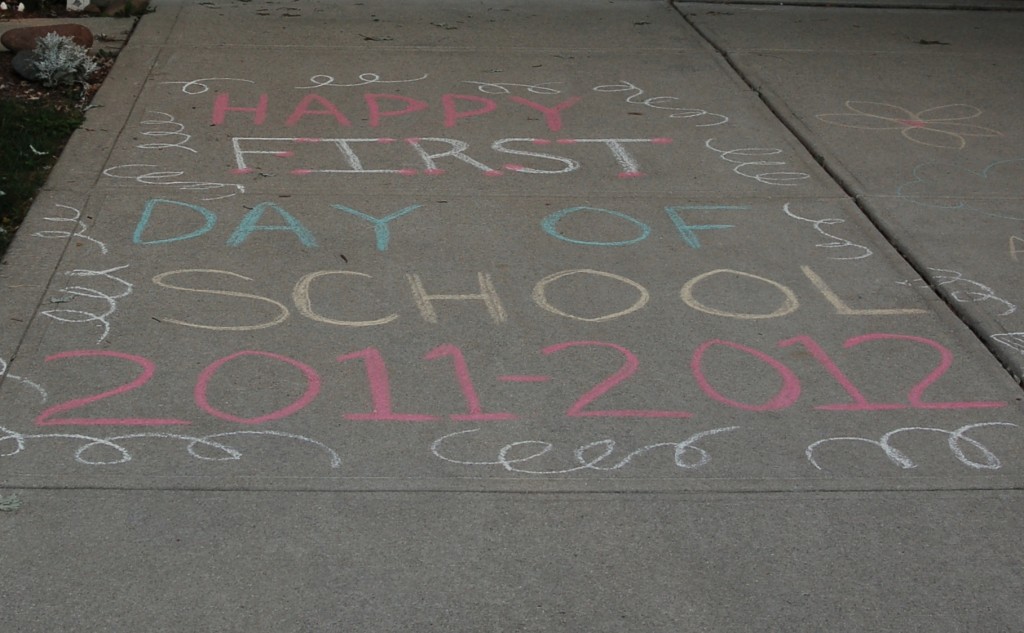 HAPPY
FIRST
DAY OF
SCHOOL
2011-2012